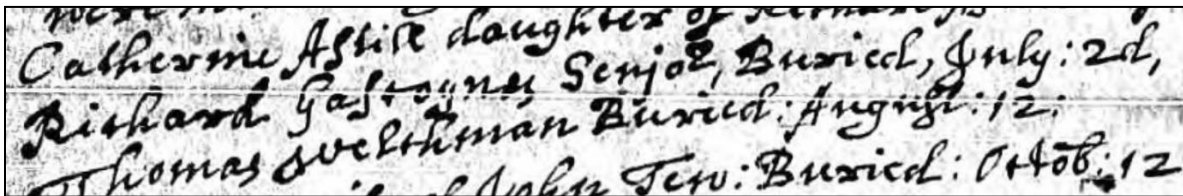 Catherine Astill daughter of Richard
Richard Gascoyne Senjor, Buried, July: 2d,
Thomas Welchman Buried: August: 12:
of John Tew: Buried: Octob: 12